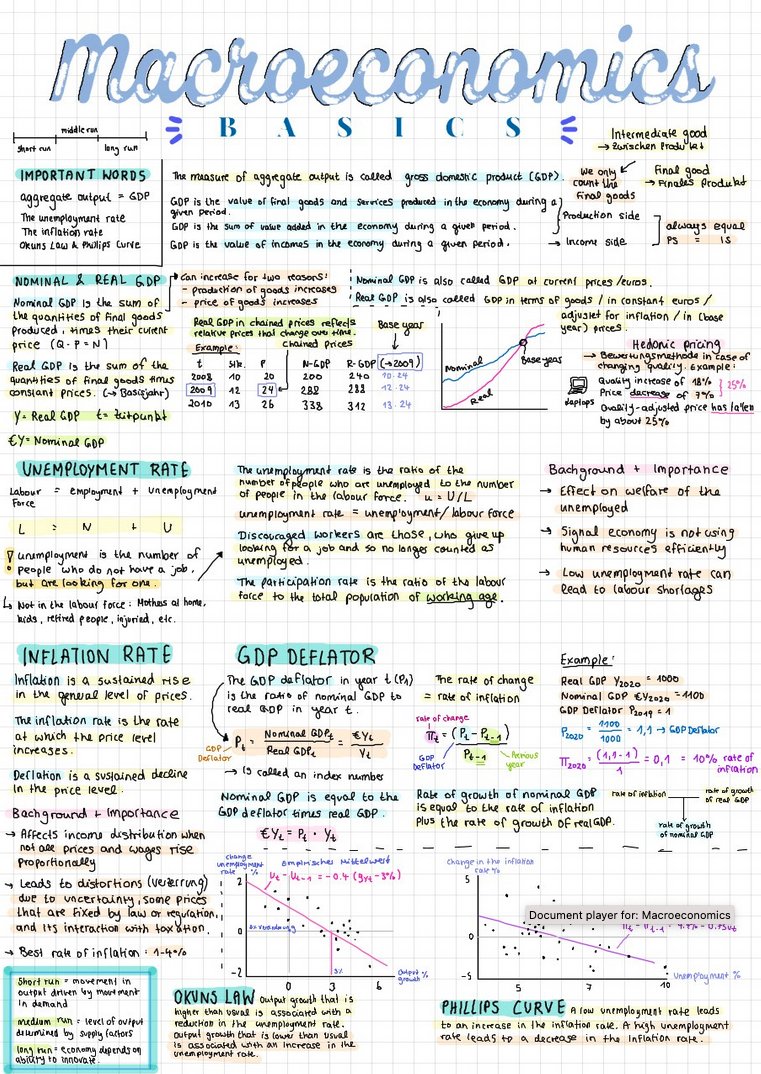 Macroeconomics
BASICS
middle run
short run
long run
Intermediate good
→ Zwischen Produkt
We only
count the
final goods
Final good
→ Finales Produkt
IMPORTANT WORDS
aggregate output = GDP
The unemployment rate
The inflation rate
Okuns Law & Philips Curve
The measure of aggregate output is called gross domestic product (GDP).
GDP is the value of final goods and services produced in the economy during a
given period.
GDP is the sum of value added in the economy during a given period.
GDP is the value of incomes in the economy during a given period.
Production side
→ Income side
always equal
PS = IS
NOMINAL & REAL GDP
Nominal GDP is the sum of
the quantities of final goods
produced, times their current
price (Q · P = N)
Real GDP is the sum of the
quantities of final goods times
constant prices. (→ Basisjahr)
Y = Real GDP t = Zeitpunkt
€Y = Nominal GDP
can increase for two reasons:
- production of goods increases
- price of goods increases
Nominal GDP is also called GDP at current prices /euros.
Real GDP is also called GDP in terms of goods / in constant euros /
adjustet for inflation / in (base
year) prices.
Real GDP in chained prices reflects
relative prices that change over time.
chained prices
Base year
Example:
t Stk. P N-GDP R-GDP (→2009)
2008 10 20 200 240 10·24
2009 12 24 288 288 12·24
2010 13 26 338 312 13·24
Nominal
Real
Base year
Hedonic pricing
→ Bewertungsmethode in case of
changing quality. Example:
Laptops
Quality increase of 18%
Price decrease of 7%
25%
Quality-adjusted price has fallen
by about 25%
UNEMPLOYMENT RATE
Labour = employment + unemployment
Force
L = N + U
! unemployment is the number of
people who do not have a job,
but are looking for one.
↳ Not in the labour force: Mothers at home,
kids, retired people, injuried, etc.
The unemployment rate is the ratio of the
number of people who are unemployed to the number
of people in the labour force. u = U/L
unemployment rate = unemployment/labour force
Discouraged workers are those, who give up
looking for a job and so no longer counted as
unemployed.
The participation rate is the ratio of the labour
force to the total population of working age.
Background + Importance
→ Effect on welfare of the
unemployed
→ Signal economy is not using
human resources efficiently
→ Low unemployment rate can
lead to labour shortages
INFLATION RATE
Inflation is a sustained rise
in the general level of prices.
The inflation rate is the rate
at which the price level
increases.
Deflation is a sustained decline
in the price level.
Background + Importance
→ Affects income distribution when
not all prices and wages rise
proportionally
→ Leads to distortions (Verzerrung)
due to uncertainty, some prices
that are fixed by law or regulation,
and its interaction with taxation.
→ Best rate of inflation: 1-4%
GDP DEFLATOR
The GDP deflator in year t (Pt)
is the ratio of nominal GDP to
real GDP in year t.
GDP
Deflator
Pt = Nominal GDPt / Real GDPt = €Yt / Yt
→ Is called an index number
Nominal GDP is equal to the
GDP deflator times real GDP.
€Yt = Pt · Yt
The rate of change
= rate of inflation
rate of change
πt = (Pt - Pt-1) / Pt-1
GDP
Deflator
year
Example:
Real GDP Y2020 = 1000
Nominal GDP €Y2020 = 1100
GDP Deflator P2019 = 1
P2020 = 1100/1000 = 1,1 → GDP Deflator
π2020 = (1,1-1)/1 = 0,1 = 10% rate of
inflation
Rate of growth of nominal GDP
is equal to the rate of inflation
plus the rate of growth of real GDP.
rate of inflation
rate of growth
of real GDP
rate of growth
of nominal GDP
change
unemployment
rate %
Empirisches Mittelwert
ut - ut-1 = -0.4 (gyt - 3%)
2
0
-2
0 3 6
3%
Output %
growth
Change in the inflation
rate %
5
0
-5
5 7 10
Document player for: Macroeconomics
Unemployment %
short run = movement in
output driven by movement
in demand
medium run = level of output
determined by supply factors
long run = economy depends on
ability to innovate.
OKUNS LAW Output growth that is
higher than usual is associated with a
reduction in the unemployment rate.
Output growth that is lower than usual
is associated with an increase in the
unemployment rate.
PHILLIPS CURVE A low unemployment rate leads
to an increase in the inflation rate. A high unemployment
rate leads to a decrease in the inflation rate.